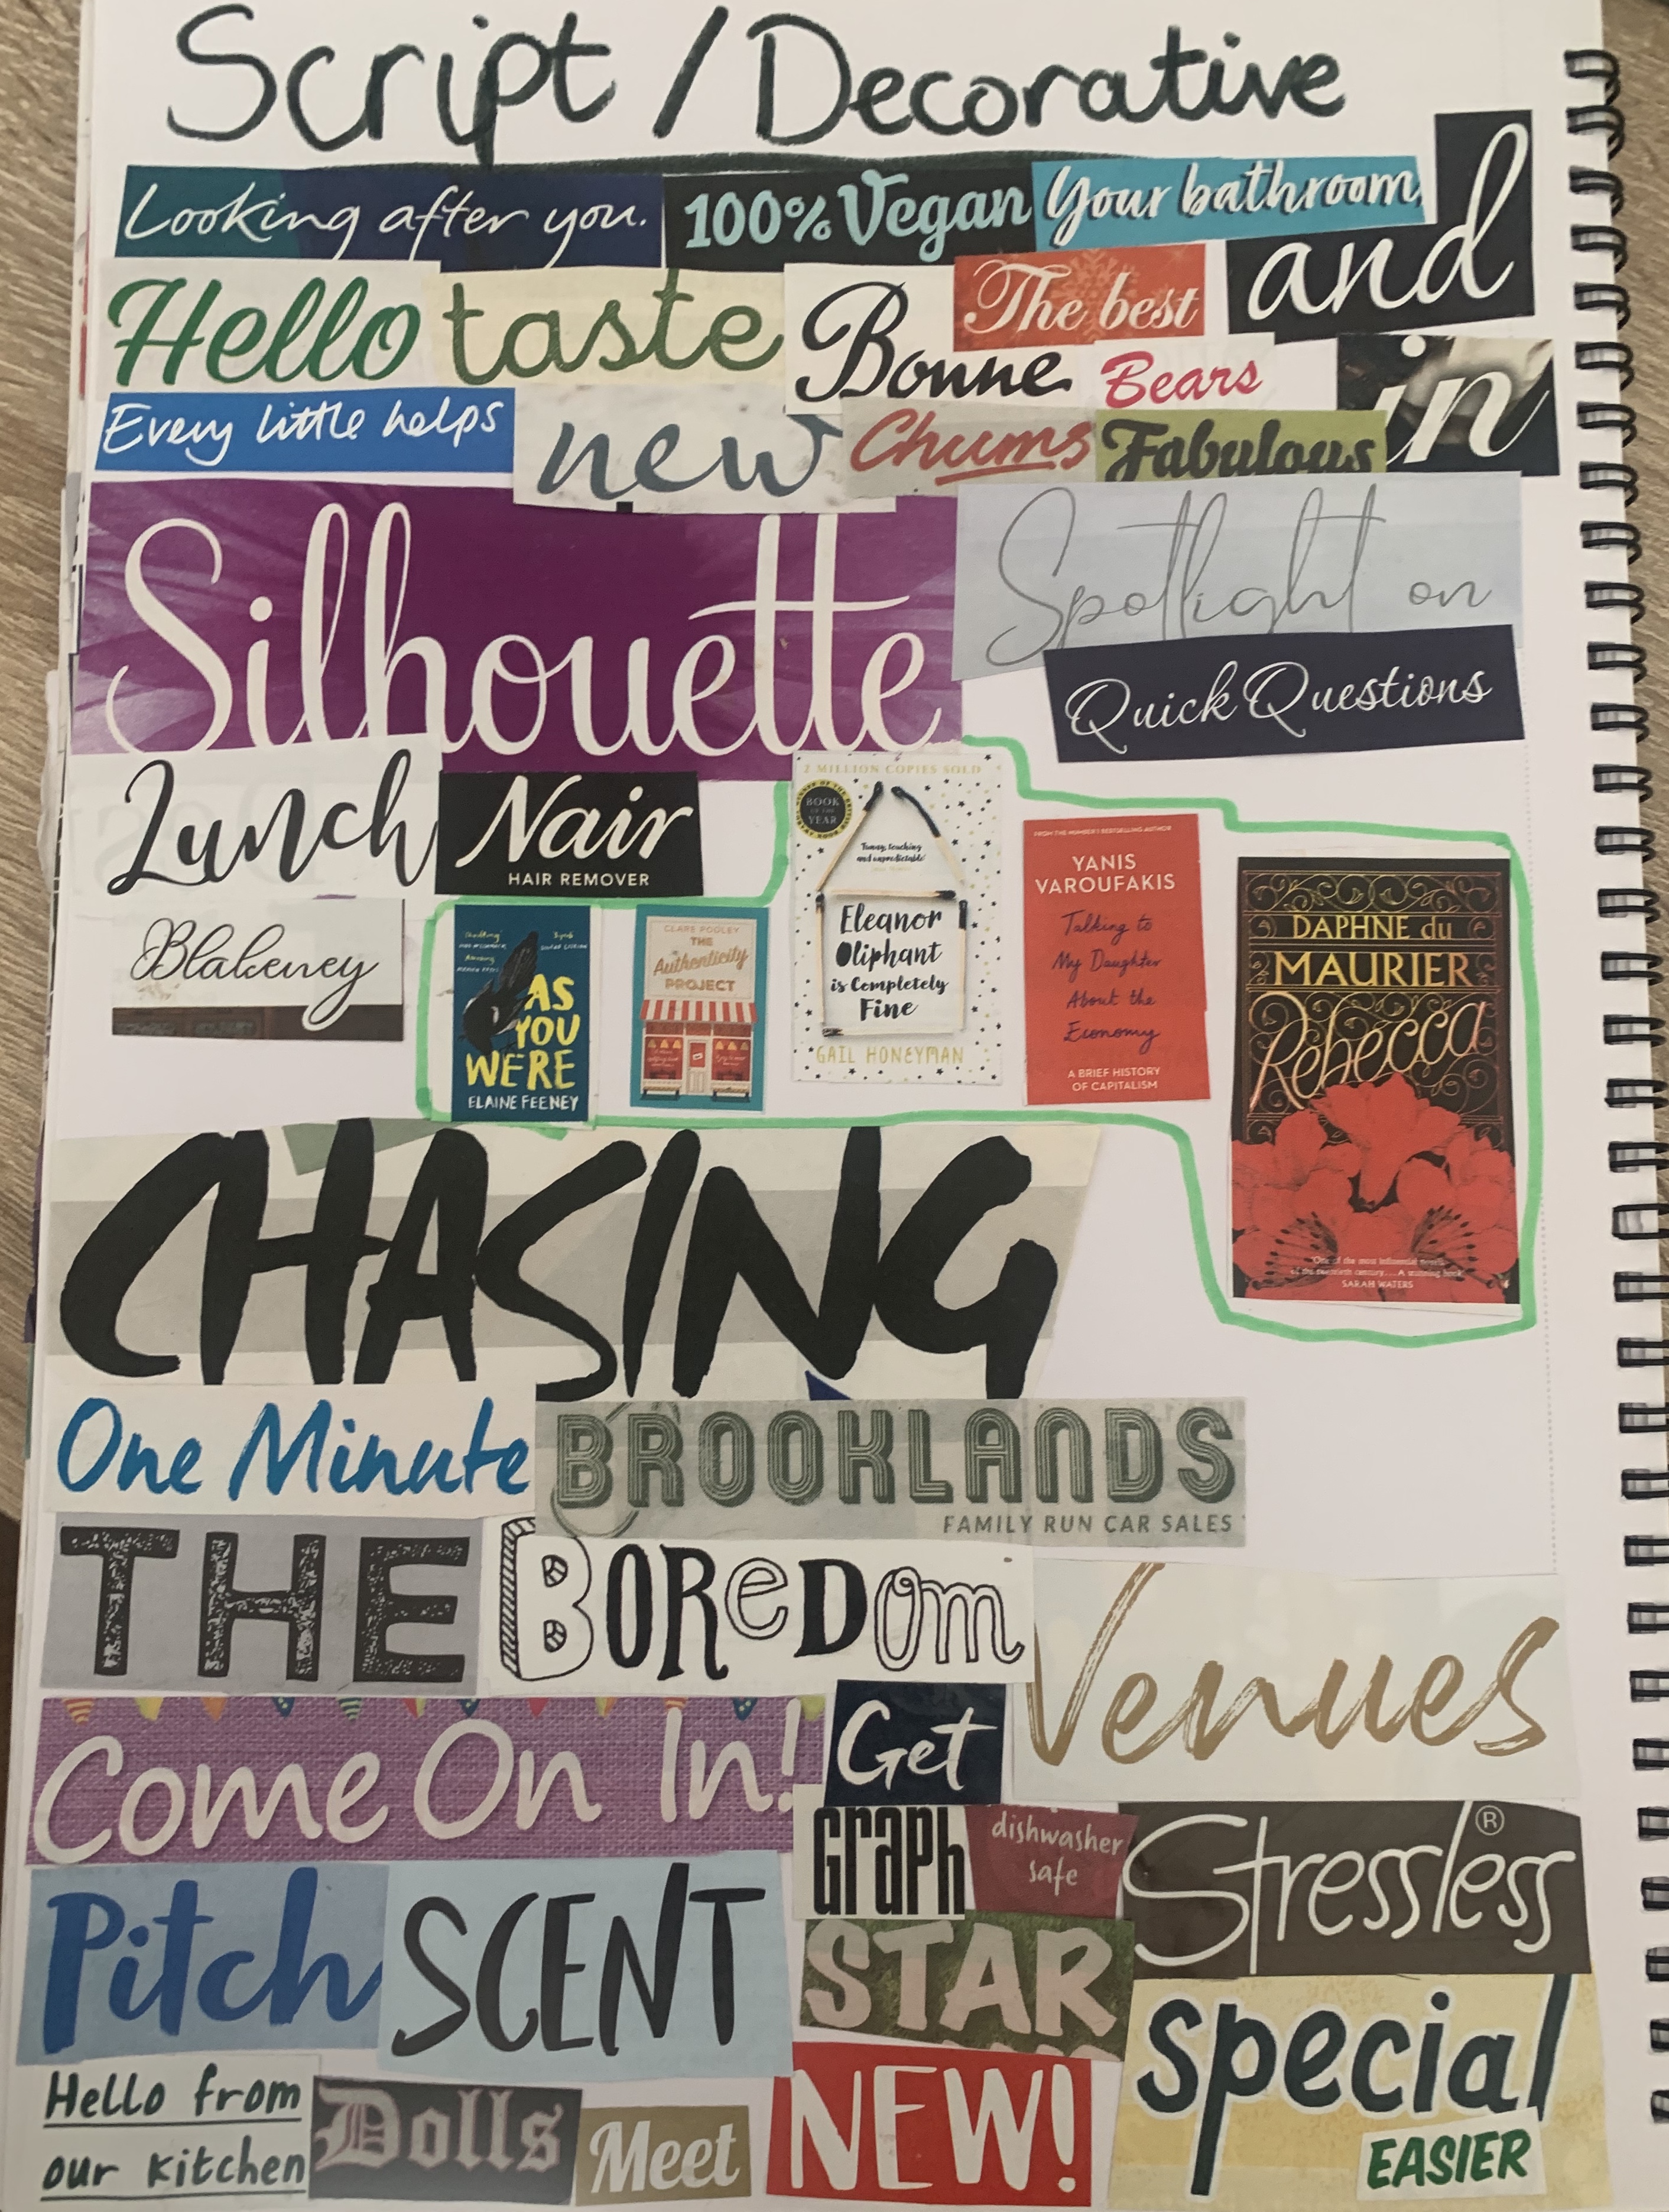 Script / Decorative
Looking after you.
100% Vegan
Your bathroom,
and
Hello
taste
Bonne
The best
Bears
in
Every little helps
new
Chums
Fabulous
Silhouette
Spotlight on
Quick Questions
Lunch
Nair
HAIR REMOVER
Blakeney
AS
YOU
WERE
ELAINE FEENEY
CLARE POOLEY
THE
Authenticity
PROJECT
2 MILLION COPIES SOLD
BOOK
OF THE
YEAR
'Funny, touching
and unpredictable'
Eleanor
Oliphant
is Completely
Fine
GAIL HONEYMAN
FROM THE NUMBER 1 BESTSELLING AUTHOR
YANIS
VAROUFAKIS
Talking to
My Daughter
About the
Economy
A BRIEF HISTORY
OF CAPITALISM
DAPHNE du
MAURIER
Rebecca
'One of the most influential novels
of the twentieth century... A stunning book'
SARAH WATERS
CHASING
One Minute
BROOKLANDS
FAMILY RUN CAR SALES
THE
BOReDOm
Venues
Come On In!
Get
Graph
dishwasher
safe
Stressless®
Pitch
SCENT
STAR
special
Hello from
our kitchen
Dolls
Meet
NEW!
EASIER